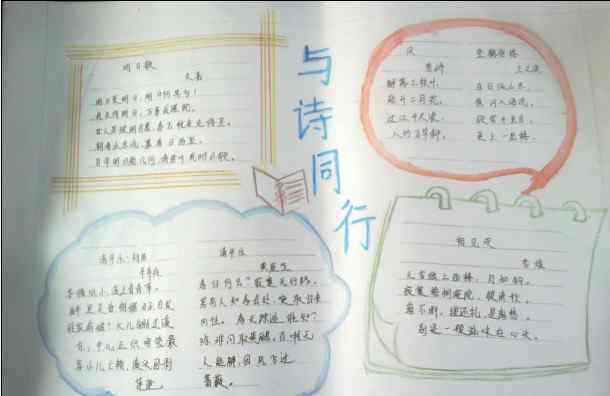 与诗同行
明日歌
文嘉
明日复明日，明日何其多！
我生待明日，万事成蹉跎。
世人若被明日累，春去秋来老将至。
朝看水东流，暮看日西坠。
百年明日能几何，请君听我明日歌。
风
李峤
解落三秋叶，
能开二月花。
过江千尺浪，
入竹万竿斜。
登鹳雀楼
王之涣
白日依山尽，
黄河入海流。
欲穷千里目，
更上一层楼。
清平乐·村居
辛弃疾
茅檐低小，溪上青青草。
醉里吴音相媚好，白发
谁家翁媪？大儿锄豆溪
东，中儿正织鸡笼。最
喜小儿亡赖，溪头卧剥
莲蓬。
清平乐
黄庭坚
春归何处？寂寞无行路。
若有人知春去处，唤取归来
同住。 春无踪迹谁知？
除非问取黄鹂，百啭无
人能解，因风飞过
蔷薇。
相见欢
李煜
无言独上西楼，月如钩。
寂寞梧桐深院，锁清秋。
剪不断，理还乱，是离愁。
别是一般滋味在心头。